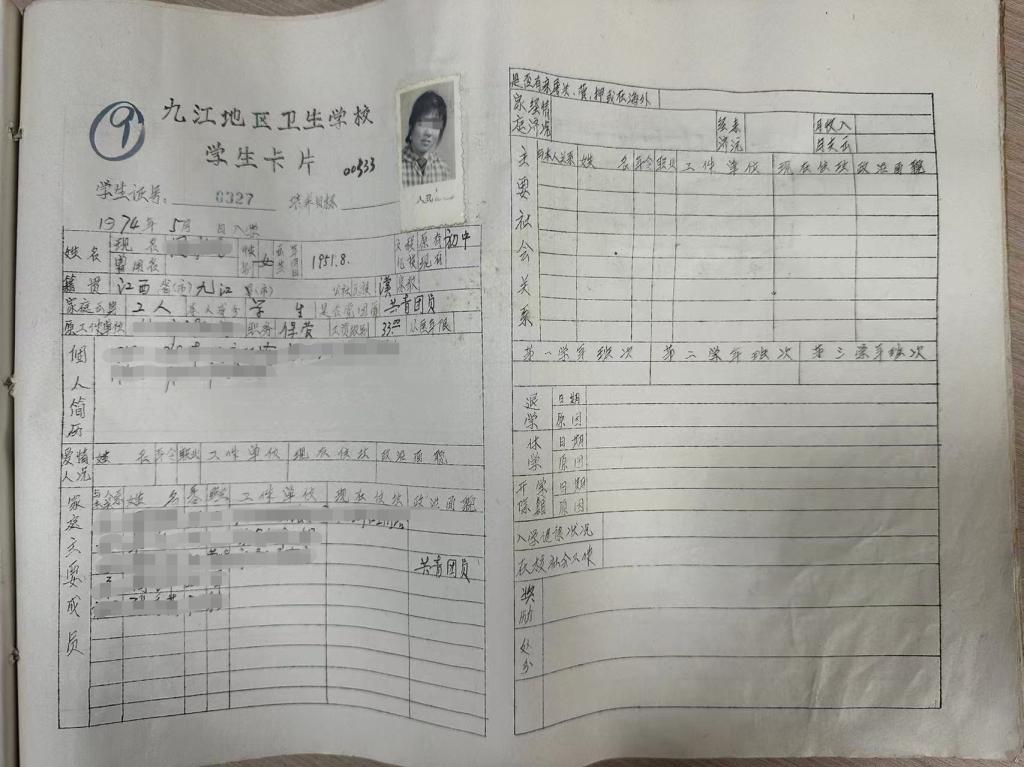 9
九江地区卫生学校
学生卡片 00533
学生证号 0327 培养目标
1974年5月 日入学
姓名 现名 性别 女 出生年月日 1951.8. 文化 原有 初中
曾用名 程度 现有
籍贯 江西省(市)九江县(市) 公社 民族 漢
家庭出身 工人 本人成分 学生 是否党团员 共青团员
原工作单位 职务 保营 工资级别 33.00 从医年限
个人简历
爱人情况 姓名 年令 职业 工作单位 现在住址 政治面貌
家庭主要成员 姓名 职业 工作单位 现在住址 政治面貌
共青团员
是否有亲属关、管、押或在海外
家庭经济情况 经济来沅 月收入
月支出
主要社会关系 与本人关系 姓名 年令 职业 工作单位 现在住址 政治面貌
第一学年班次 第二学年班次 第三学年班次
退学 日期
原因
休学 日期
原因
开除学籍 日期
原因
在校社会工作
奖励处分